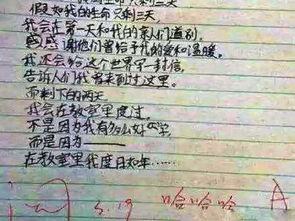 假如我的生命只剩三天
假如我的生命只剩三天，
我会在第一天和我的亲人们道别，
感谢他们曾给予我的爱和温暖。
我还会给这个世界写一封信，
告诉人们我曾来到过这里。
而剩下的两天，
我会在教室里度过。
不是因为我有多么好学，
而是因为——
在教室里我度日如年……
5.19
哈哈哈
A